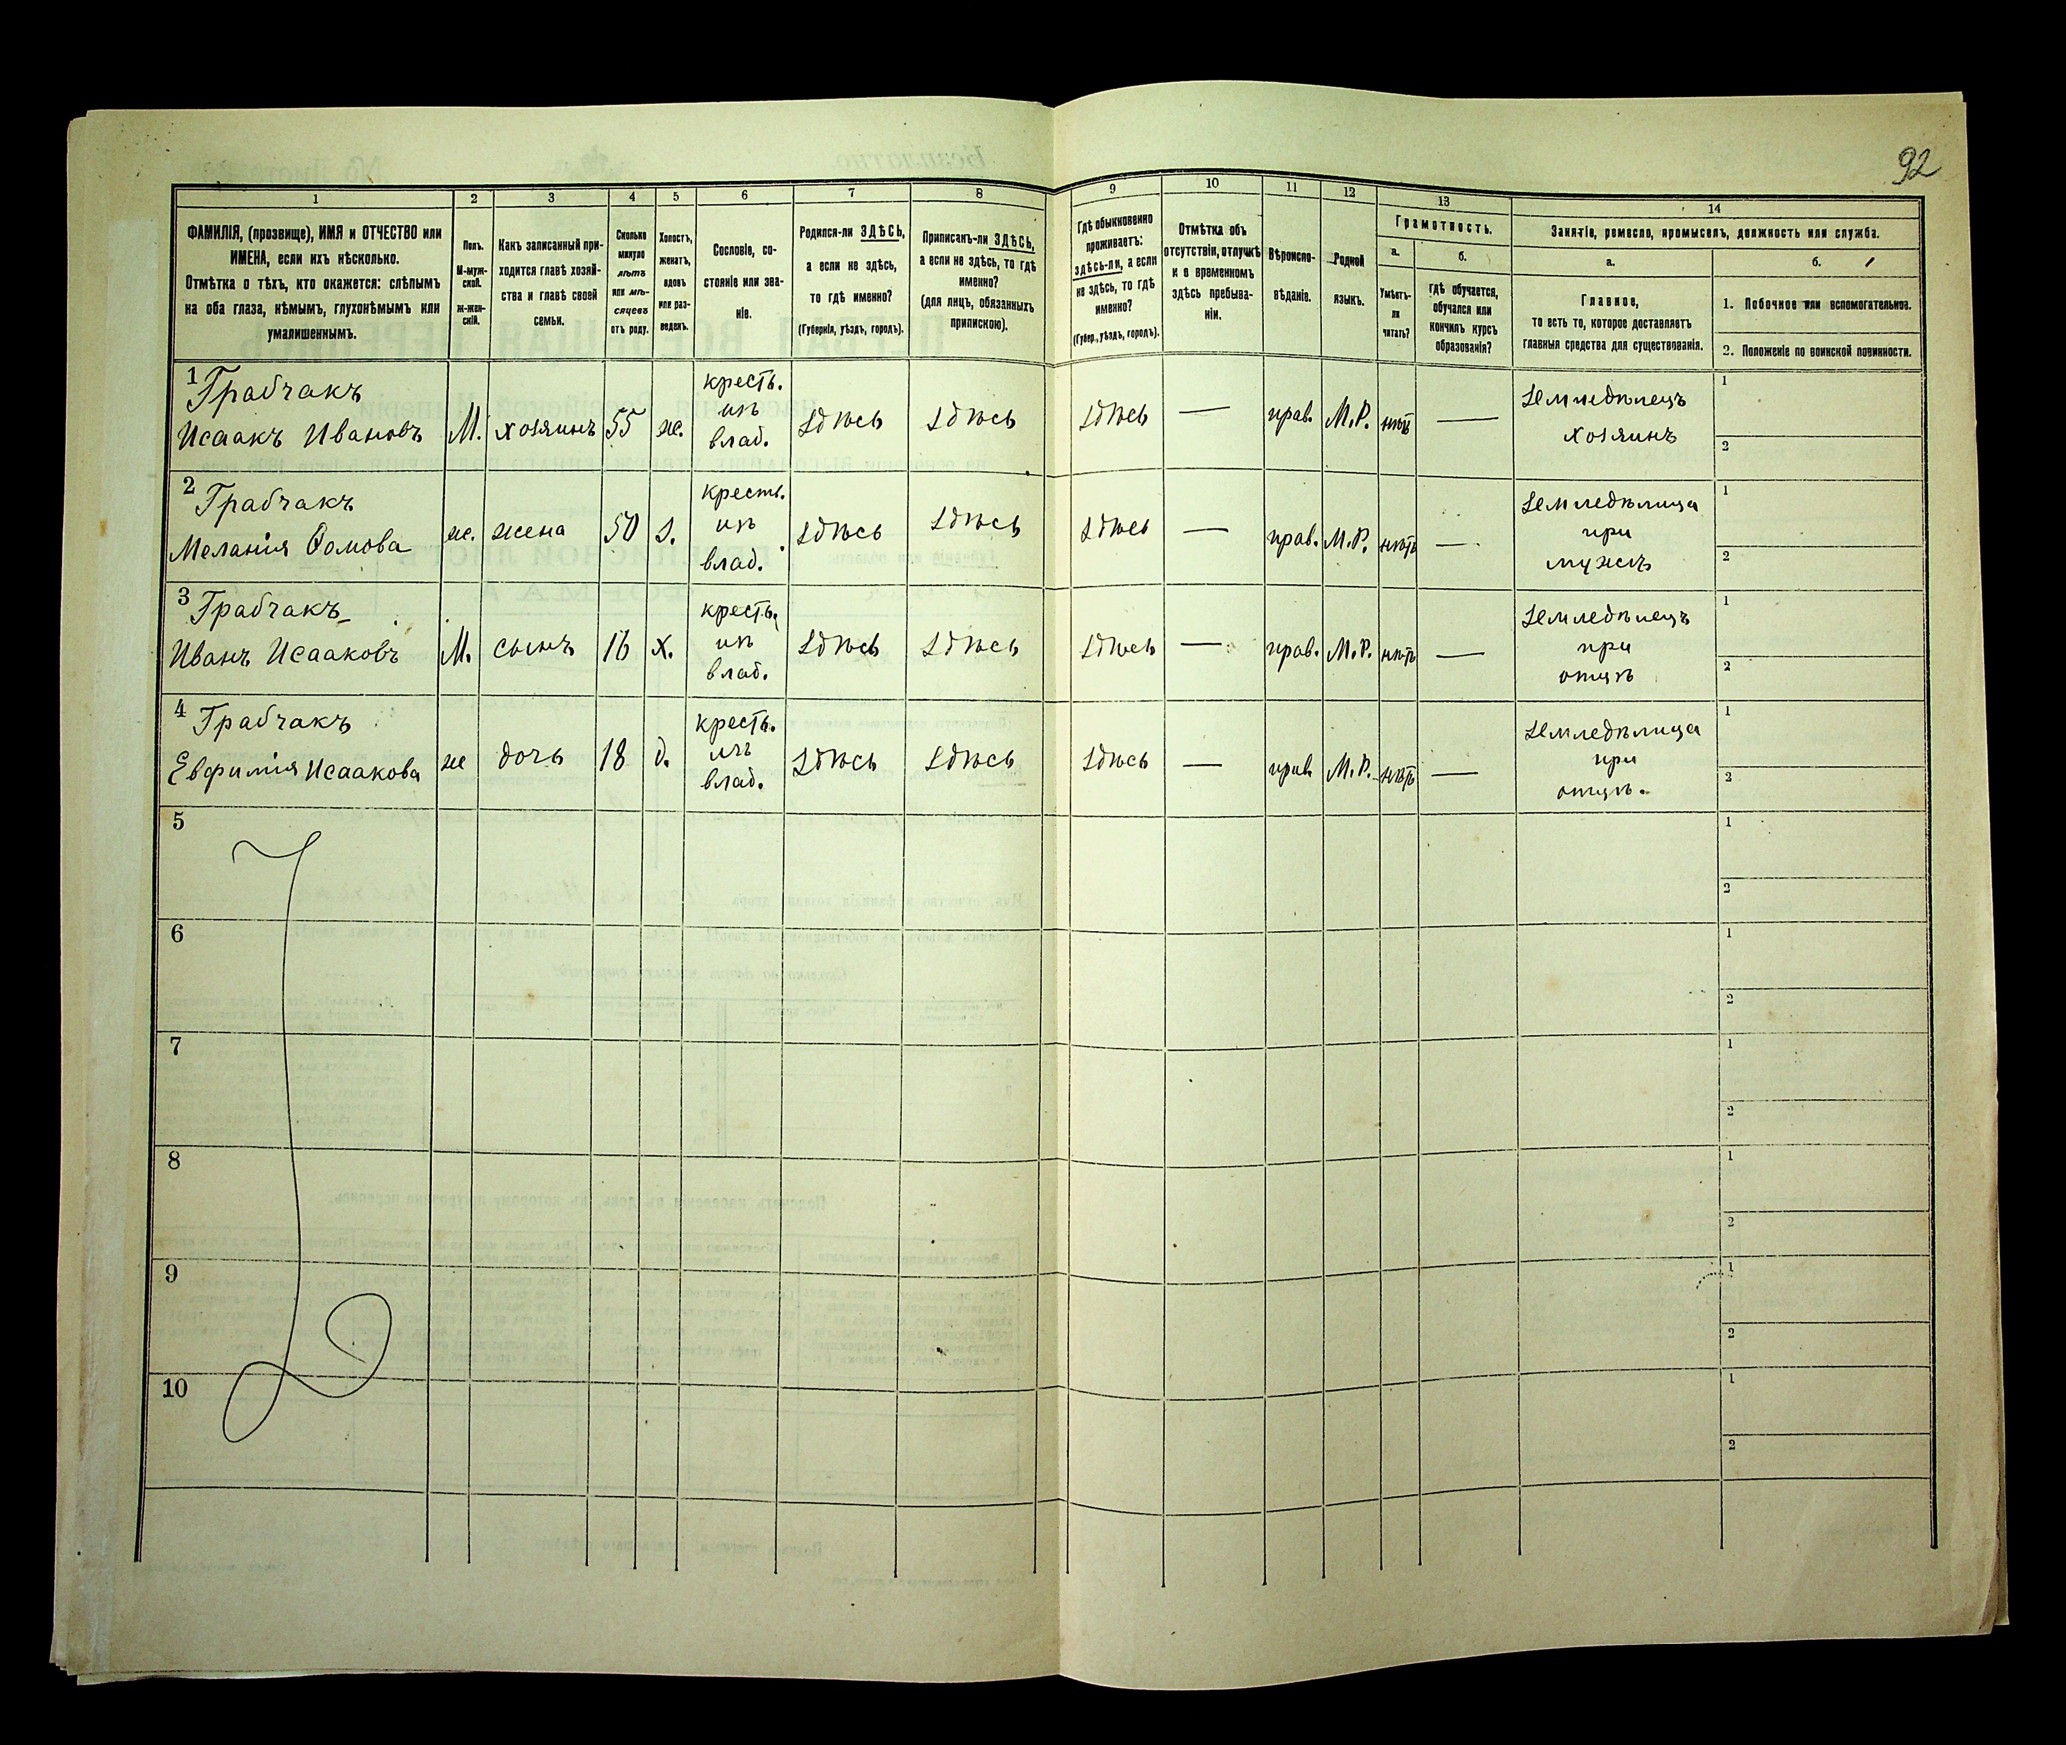 92
1
2
3
4
5
6
7
8
9
10
11
12
13
14
ФАМИЛІЯ, (прозвище), ИМЯ и ОТЧЕСТВО или
ИМЕНА, если ихъ нѣсколько.
Отмѣтка о тѣхъ, кто окажется: слѣпымъ
на оба глаза, нѣмымъ, глухонѣмымъ или
умалишеннымъ.
Полъ.
М-муж-
ской.
ж-жен-
скій.
Какъ записанный при-
ходится главѣ хозяй-
ства и главѣ своей
семьи.
Сколько
минуло
лѣтъ
или мѣ-
сяцевъ
отъ роду.
Холостъ,
женатъ,
вдовъ
или раз-
веденъ.
Сословіе, со-
стояніе или зва-
ніе.
Родился-ли ЗДѢСЬ,
а если не здѣсь,
то гдѣ именно?
(Губернія, уѣздъ, городъ).
Приписанъ-ли ЗДѢСЬ,
а если не здѣсь, то гдѣ
именно?
(для лицъ, обязанныхъ
припискою).
Гдѣ обыкновенно
проживаетъ:
здѣсь-ли, а если
не здѣсь, то гдѣ
именно?
(Губер., уѣздъ, городъ).
Отмѣтка объ
отсутствіи, отлучкѣ
и о временномъ
здѣсь пребыва-
ніи.
Вѣроиспо-
вѣданіе.
Родной
языкъ.
Грамотность.
а.
Умѣетъ-
ли
читать?
б.
гдѣ обучается,
обучался или
кончилъ курсъ
образованія?
Занятіе, ремесло, промыселъ, должность или служба.
а.
Главное,
то есть то, которое доставляетъ
главныя средства для существованія.
б.
1. Побочное или вспомогательное.
2. Положеніе по воинской повинности.
1 Грабчакъ
Исаакъ Ивановъ М. хозяинъ 55 ж. кресть. изъ влад. здѣсь здѣсь здѣсь — прав. М.Р. нѣтъ — Земледѣлецъ
хозяинъ
1
2
2 Грабчакъ
Меланія Ѳомова ж. жена 50 з. кресть. изъ влад. здѣсь здѣсь здѣсь — прав. М.Р. нѣтъ — Земледѣлица
при
мужѣ
1
2
3 Грабчакъ
Иванъ Исааковъ М. сынъ 16 х. кресть. изъ влад. здѣсь здѣсь здѣсь — прав. М.Р. нѣтъ — Земледѣлецъ
при
отцѣ
1
2
4 Грабчакъ
Евфимія Исаакова ж дочь 18 д. кресть. изъ влад. здѣсь здѣсь здѣсь — прав М.Р. нѣтъ — Земледѣлица
при
отцѣ.
1
2
5
1
2
6
1
2
7
1
2
8
1
2
9
1
2
10
1
2